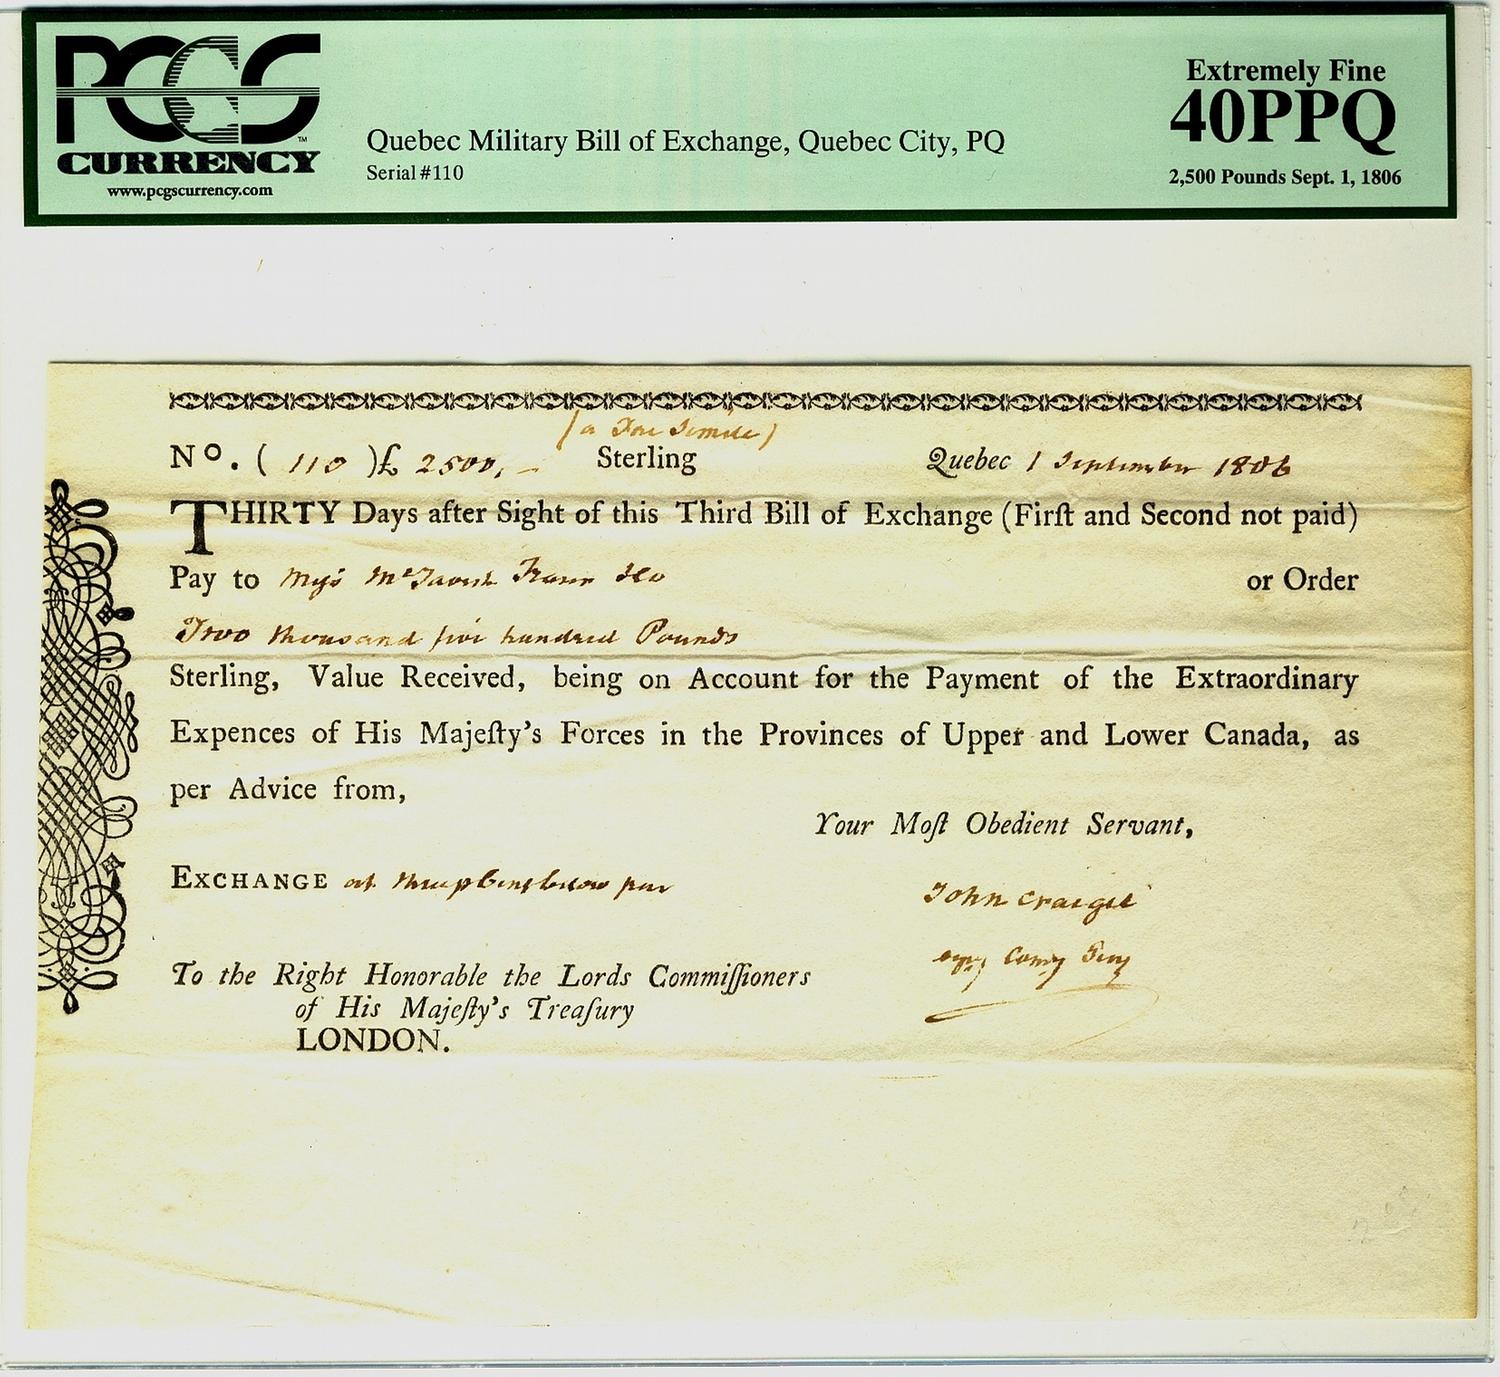 PCGS
CURRENCY
www.pcgscurrency.com
Quebec Military Bill of Exchange, Quebec City, PQ
Serial #110
Extremely Fine
40PPQ
2,500 Pounds Sept. 1, 1806
(a Fac Simile)
No. ( 110 ) £ 2500,- Sterling Quebec 1 September 1806
THIRTY Days after Sight of this Third Bill of Exchange (Firſt and Second not paid)
Pay to McTavish Fraser &Co or Order
Two thousand five hundred Pounds
Sterling, Value Received, being on Account for the Payment of the Extraordinary
Expences of His Majeſty's Forces in the Provinces of Upper and Lower Canada, as
per Advice from,
Your Moſt Obedient Servant,
EXCHANGE at three pCent below par
John Craigie
To the Right Honorable the Lords Commiſſioners
of His Majeſty's Treaſury
LONDON.